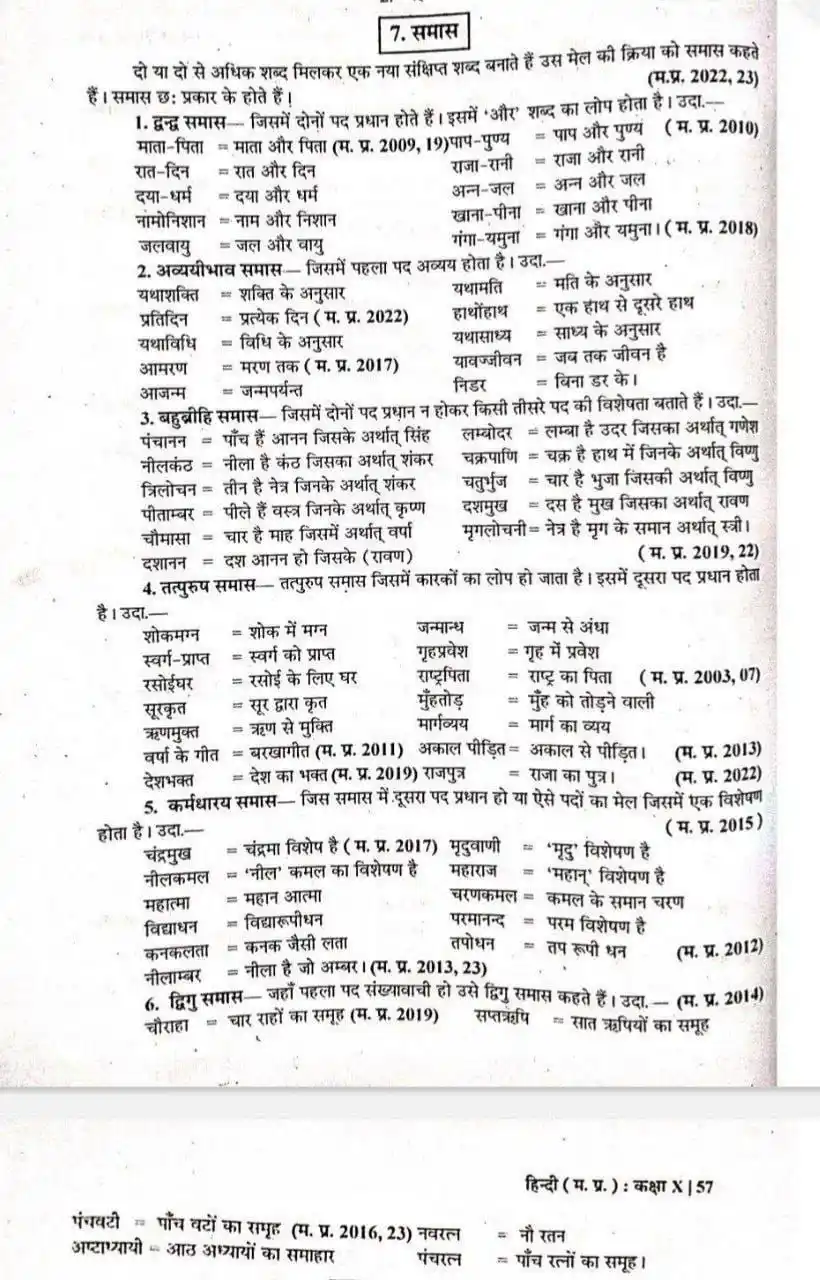 7. समास
दो या दो से अधिक शब्द मिलकर एक नया संक्षिप्त शब्द बनाते हैं उस मेल की क्रिया को समास कहते
हैं। समास छः प्रकार के होते हैं। (म.प्र. 2022, 23)
1. द्वन्द्व समास— जिसमें दोनों पद प्रधान होते हैं। इसमें ‘और’ शब्द का लोप होता है। उदा.—
माता-पिता = माता और पिता (म. प्र. 2009, 19) पाप-पुण्य = पाप और पुण्य ( म. प्र. 2010)
रात-दिन = रात और दिन राजा-रानी = राजा और रानी
दया-धर्म = दया और धर्म अन्न-जल = अन्न और जल
नामोनिशान = नाम और निशान खाना-पीना = खाना और पीना
जलवायु = जल और वायु गंगा-यमुना = गंगा और यमुना। ( म. प्र. 2018)
2. अव्ययीभाव समास— जिसमें पहला पद अव्यय होता है। उदा.—
यथाशक्ति = शक्ति के अनुसार यथामति = मति के अनुसार
प्रतिदिन = प्रत्येक दिन ( म. प्र. 2022) हाथोंहाथ = एक हाथ से दूसरे हाथ
यथाविधि = विधि के अनुसार यथासाध्य = साध्य के अनुसार
आमरण = मरण तक ( म. प्र. 2017) यावज्जीवन = जब तक जीवन है
आजन्म = जन्मपर्यन्त निडर = बिना डर के।
3. बहुब्रीहि समास— जिसमें दोनों पद प्रधान न होकर किसी तीसरे पद की विशेषता बताते हैं। उदा.—
पंचानन = पाँच हैं आनन जिसके अर्थात् सिंह लम्बोदर = लम्बा है उदर जिसका अर्थात् गणेश
नीलकंठ = नीला है कंठ जिसका अर्थात् शंकर चक्रपाणि = चक्र है हाथ में जिनके अर्थात् विष्णु
त्रिलोचन = तीन है नेत्र जिनके अर्थात् शंकर चतुर्भुज = चार है भुजा जिसकी अर्थात् विष्णु
पीताम्बर = पीले हैं वस्त्र जिनके अर्थात् कृष्ण दशमुख = दस है मुख जिसका अर्थात् रावण
चौमासा = चार है माह जिसमें अर्थात् वर्षा मृगलोचनी = नेत्र है मृग के समान अर्थात् स्त्री।
दशानन = दश आनन हो जिसके (रावण) ( म. प्र. 2019, 22)
4. तत्पुरुष समास— तत्पुरुष समास जिसमें कारकों का लोप हो जाता है। इसमें दूसरा पद प्रधान होता
है। उदा.—
शोकमग्न = शोक में मग्न जन्मान्ध = जन्म से अंधा
स्वर्ग-प्राप्त = स्वर्ग को प्राप्त गृहप्रवेश = गृह में प्रवेश
रसोईघर = रसोई के लिए घर राष्ट्रपिता = राष्ट्र का पिता ( म. प्र. 2003, 07)
सूरकृत = सूर द्वारा कृत मुँहतोड़ = मुँह को तोड़ने वाली
ऋणमुक्त = ऋण से मुक्ति मार्गव्यय = मार्ग का व्यय
वर्षा के गीत = बरखागीत (म. प्र. 2011) अकाल पीड़ित = अकाल से पीड़ित। (म. प्र. 2013)
देशभक्त = देश का भक्त (म. प्र. 2019) राजपुत्र = राजा का पुत्र। (म. प्र. 2022)
5. कर्मधारय समास— जिस समास में दूसरा पद प्रधान हो या ऐसे पदों का मेल जिसमें एक विशेषण
होता है। उदा.— ( म. प्र. 2015)
चंद्रमुख = चंद्रमा विशेष है ( म. प्र. 2017) मृदुवाणी = ‘मृदु’ विशेषण है
नीलकमल = ‘नील’ कमल का विशेषण है महाराज = ‘महान्’ विशेषण है
महात्मा = महान आत्मा चरणकमल = कमल के समान चरण
विद्याधन = विद्यारूपीधन परमानन्द = परम विशेषण है
कनकलता = कनक जैसी लता तपोधन = तप रूपी धन (म. प्र. 2012)
नीलाम्बर = नीला है जो अम्बर। (म. प्र. 2013, 23)
6. द्विगु समास— जहाँ पहला पद संख्यावाची हो उसे द्विगु समास कहते हैं। उदा. — (म. प्र. 2014)
चौराहा = चार राहों का समूह (म. प्र. 2019) सप्तऋषि = सात ऋषियों का समूह
हिन्दी ( म. प्र. ) : कक्षा X | 57
पंचवटी = पाँच वटों का समूह (म. प्र. 2016, 23) नवरत्न = नौ रतन
अष्टाध्यायी = आठ अध्यायों का समाहार पंचरत्न = पाँच रत्नों का समूह।